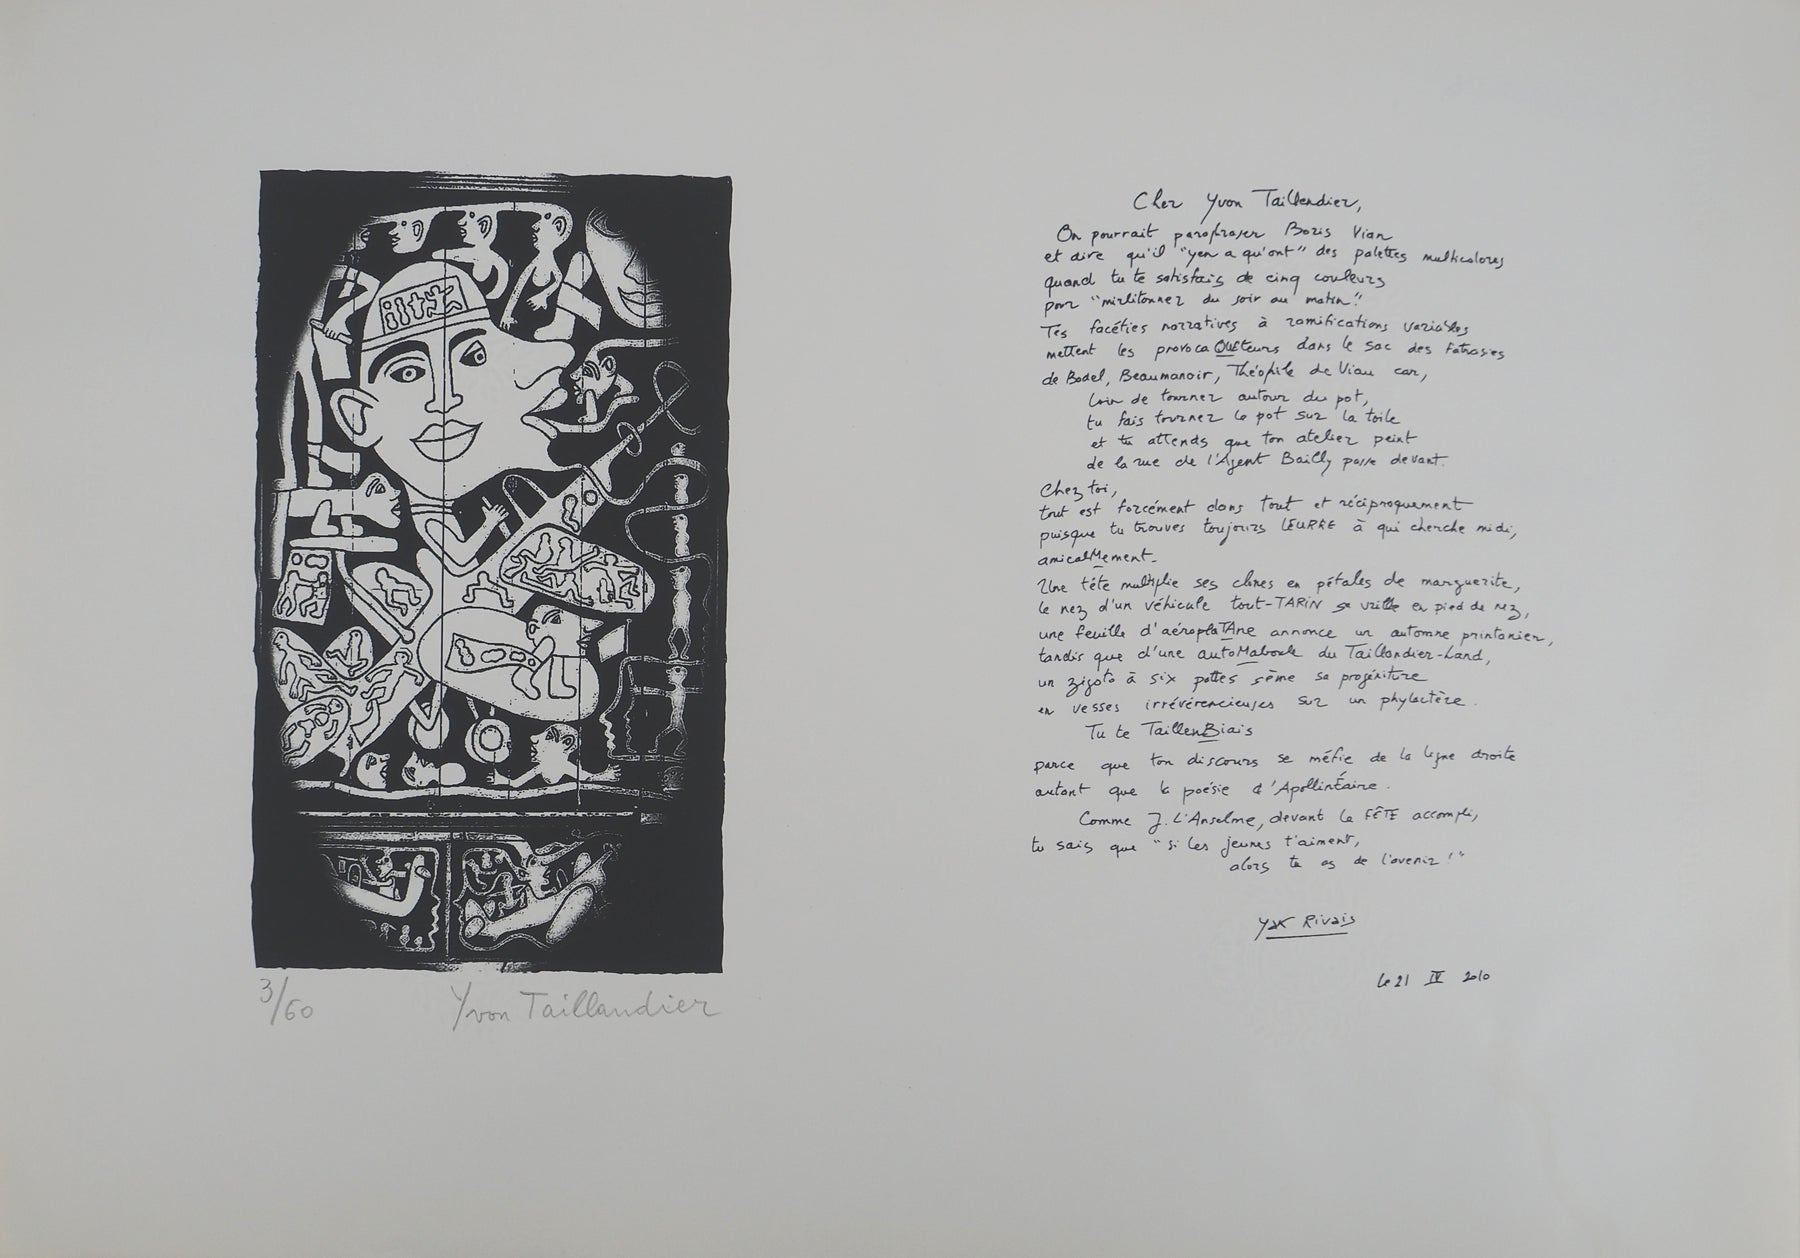 3/60
Yvon Taillandier
Cher Yvon Taillandier,
On pourrait paraphraser Boris Vian
et dire qu'il "yen a qu'ont" des palettes multicolores
quand tu te satisfais de cinq couleurs
pour "mirlitonner du soir au matin".
Tes facéties narratives à ramifications variables
mettent les provocaQUEteurs dans le sac des Fatrasies
de Bodel, Beaumanoir, Théophile de Viau car,
loin de tourner autour du pot,
tu fais tourner le pot sur la toile
et tu attends que ton atelier peint
de la rue de l'Agent Bailly passe devant.
Chez toi,
tout est forcément dans tout et réciproquement
puisque tu trouves toujours LEURRE à qui cherche midi,
amicalMement.
Une tête multiplie ses clones en pétales de marguerite,
le nez d'un véhicule tout-TARIN se vrille en pied de nez,
une feuille d'aéroplaTAne annonce un automne printanier,
tandis que d'une autoMaboule du Taillandier-Land,
un zigoto à six pattes sème sa progéniture
en vesses irrévérencieuses sur un phylactère.
Tu te TaillenBiais
parce que ton discours se méfie de la ligne droite
autant que la poésie d'ApollinÉaire.
Comme J. L'Anselme, devant la FÊTE accompli,
tu sais que "si les jeunes t'aiment,
alors tu as de l'avenir !"
Yak Rivais
le 21 IV 2010